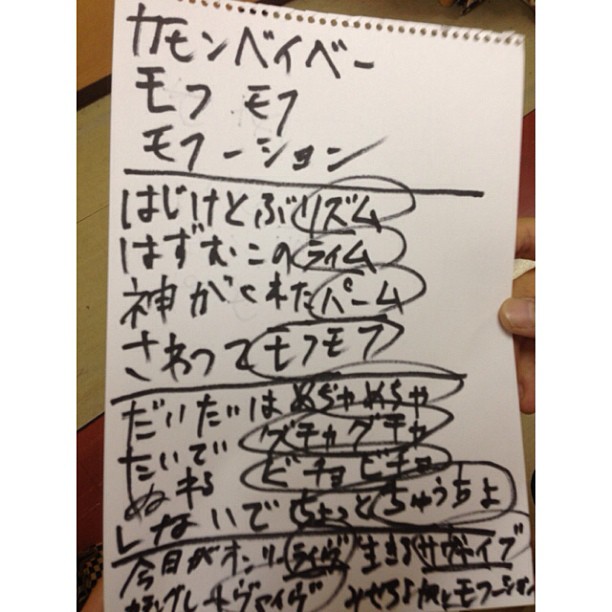 カモンベイベー
モフ モフ
モフーション
はじけとぶリズム
はずむこのライム
神がくれたパーム
さわってモフモフ
だいたいはめちゃめちゃ
たいでグチャグチャ
ぬれるビチョビチョ
しないでちょっとちゅうちょ
今日がオンリーライヴ 生きるサヴァイブ
みせろよ モフーション